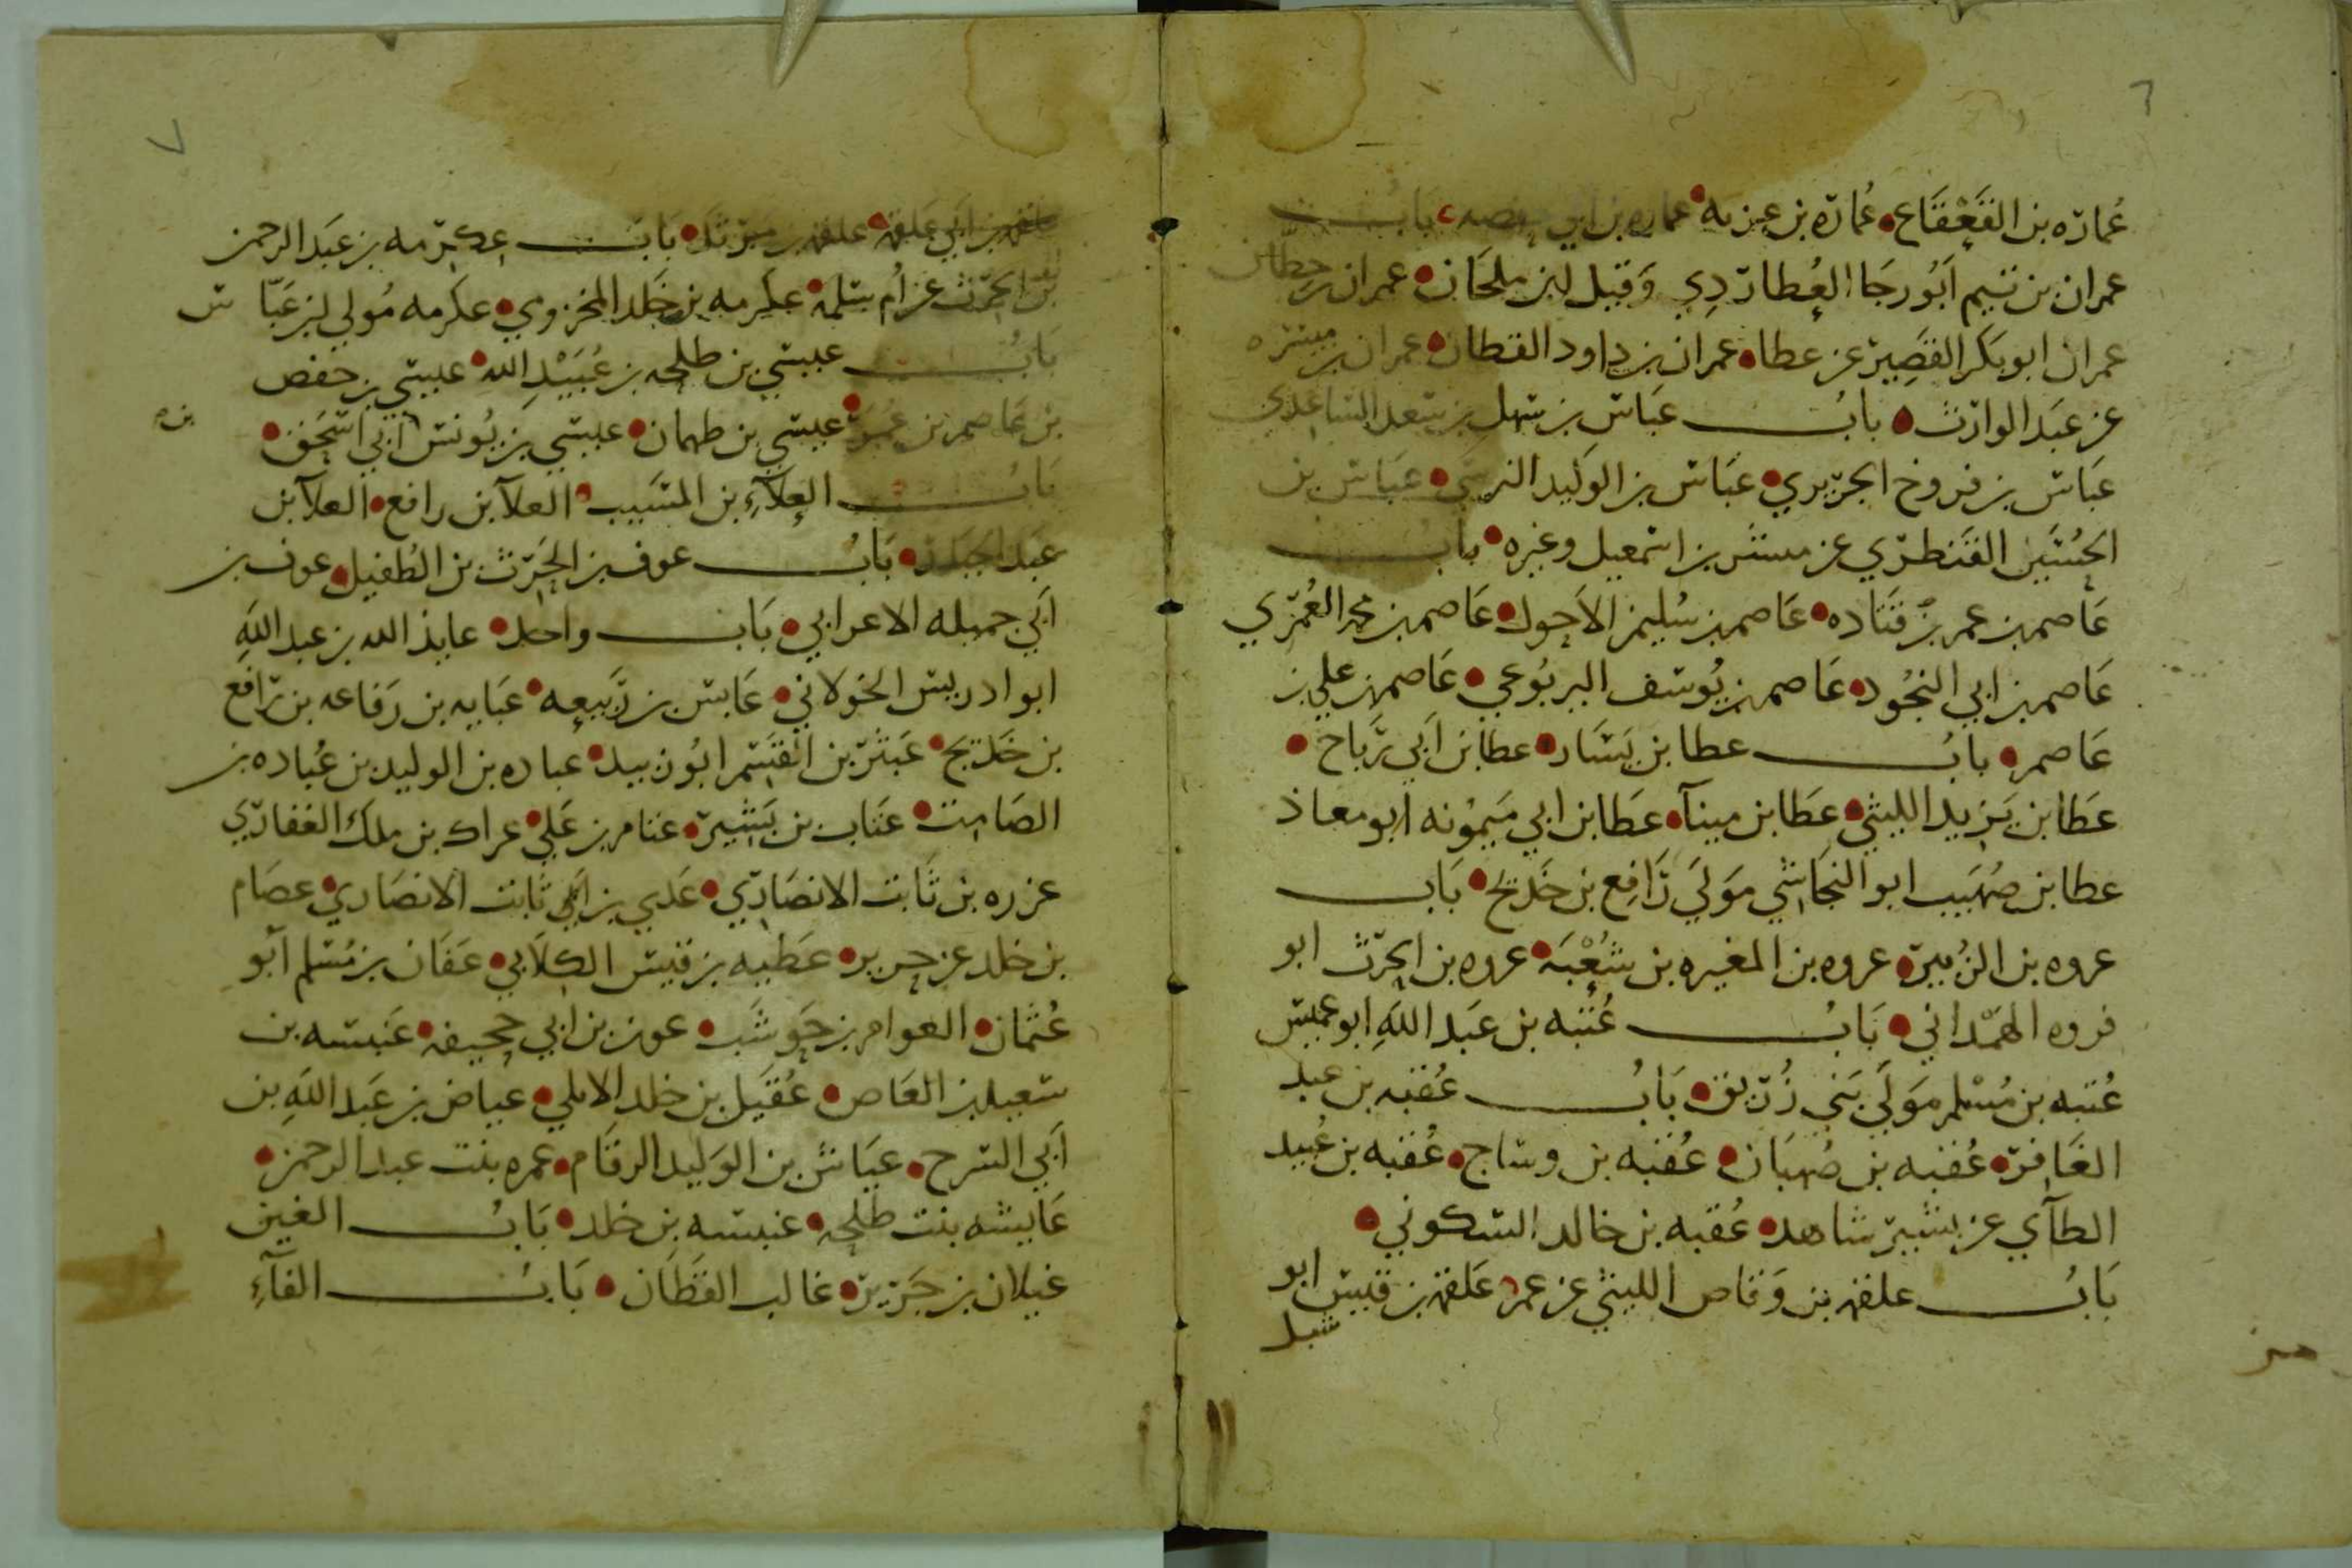 ٦
عُمارَه بن القَعْقَاع عُمارَه بن غزيه عماره بن ابي حفصه بابُ
عمران بن تيم ابَوُ رجَا العُطارَدِي وَقيل لبن ملحَان عمران بن حِطّان
عمران ابو بكر القصَير عن عطا عمران بن داود القطان عمران بن ميسره
عن عبَد الوارث بابُ عبَاس بن سَهل بن سَعد الساعدي
عبَاس بن فروخ الجرَيري عبَاس بن الوَليد النرسَي عبَاس بن
الحُسَين القنطرَي عن مبشر بن اسمعيل وغيره باب
عَاصم بن عمر بن قتَاده عَاصم بن سُليمن الاَحول عَاصم بن محمد العُمَري
عَاصم بن ابي النجُود عَاصم بن يُوسَف اليربُوعي عَاصم بن علي بن
عَاصم بابُ عطا بن يَسَار عطا بن اَبي رَباح
عَطا بن يَزيد الليثي عَطا بن مينآ عَطا بن ابي مَيمُونه ابو معاذ
عطا بن صُهَيب ابو النجَاشي مَولَي رَافِع بن خَديج بَاب
عروه بن الزُبير عروه بن المغيره بن شُعْبَه عروه بن الحرَث ابو
فروه الهمْدَاني بَابُ عُتبه بن عبَد اللهِ ابو عميس
عُتبه بن مُسْلم مَولَي بَني زُرَيق بَابُ عُقبه بن عبد
الغَافر عُقبه بن صُهبَان عُقبه بن وسَاج عُقبه بن عُبيد
الطآي عن بشير شاهد عُقبه بن خالد السكوني
بَابُ علقمه بن وَقاص الليثي عن عمر عَلقمه بن قيس ابو
شبل
٧
علقمه بن ابَي عَلقمه علقمه بن مَرثَد بَابُ عِكرَمه بن عبَد الرحمن
بن الحرَث عن ام سَلمه عكرمه بن خَلد المخزومي عكرمه مُولي لبن عبَا س
بَابُ عيسَي بن طلحه بن عُبَيْدِ الله عيسَي بن حفص
بن عَاصم بن عُمَر عيسَي بن طهمان عيسَي بن يُونس بن ابي اسَحق
بَابُ العلآءِ بن المسَيب العلآ بن رافع العلآ بن
عبَد الجبَار بَابُ عوف بن الحَرَث بن الطُفيل عوف بن
اَبي جميله الاعرابي بَاب واحد عايذ الله بن عبد اللهِ
ابو ادريس الخولاني عَابس بن رَبَيعه عبَايه بن رَفاعه بن رَافع
بن خَديج عَبثَر بن القسَم ابَوُ زبيد عباده بن الوليد بن عُباده بن
الصَامت عتَاب بن بَشَير عثام بن عَلي عراك بن ملك الغفارَي
عزره بن ثَابت الانصَارَي عَدي بن اَبي ثابت الانصَاري عصَام
بن خلد عن حرير عَطيه بن قيس الكلَابي عَفَان بن مُسَلم اَبو
عُثمان العوام بن حَوشَب عون بن ابي جحيفه عَنبسَه بن
سَعيد بن العَاص عُقَيل بن خلد الايلي عياض بن عبَد اللهِ بن
اَبي السَرح عيَاش بن الوَليد الرقَام عمره بنت عبد الرحمن
عَايشه بنت طلحه عنبسَه بن خلد بَابُ الغين
غيلان بن جَرَير غالب القَطَان بَابُ الفآءِ